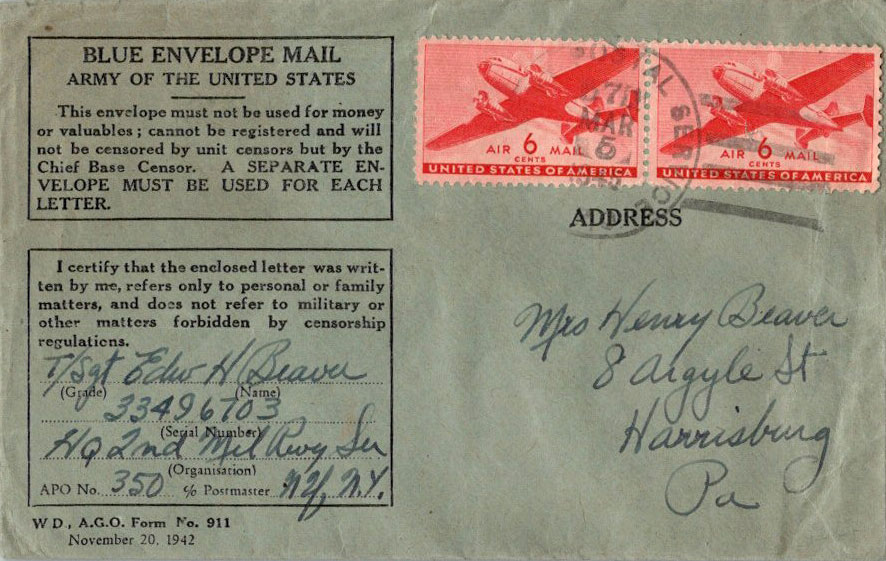 BLUE ENVELOPE MAIL
ARMY OF THE UNITED STATES
This envelope must not be used for money
or valuables; cannot be registered and will
not be censored by unit censors but by the
Chief Base Censor. A SEPARATE EN-
VELOPE MUST BE USED FOR EACH
LETTER.
AIR 6 MAIL
CENTS
UNITED STATES OF AMERICA
AIR 6 MAIL
CENTS
UNITED STATES OF AMERICA
POSTAL SERVICE
MAR
6
ADDRESS
I certify that the enclosed letter was writ-
ten by me, refers only to personal or family
matters, and does not refer to military or
other matters forbidden by censorship
regulations.
T/Sgt Edw H Beaver
(Grade) (Name)
33496703
(Serial Number)
Hq 2nd Mil Rwy Ser
(Organisation)
APO No. 350 c/o Postmaster NY, N.Y.
W D., A.G.O. Form No. 911
November 20, 1942
Mrs Henry Beaver
8 Argyle St
Harrisburg
Pa